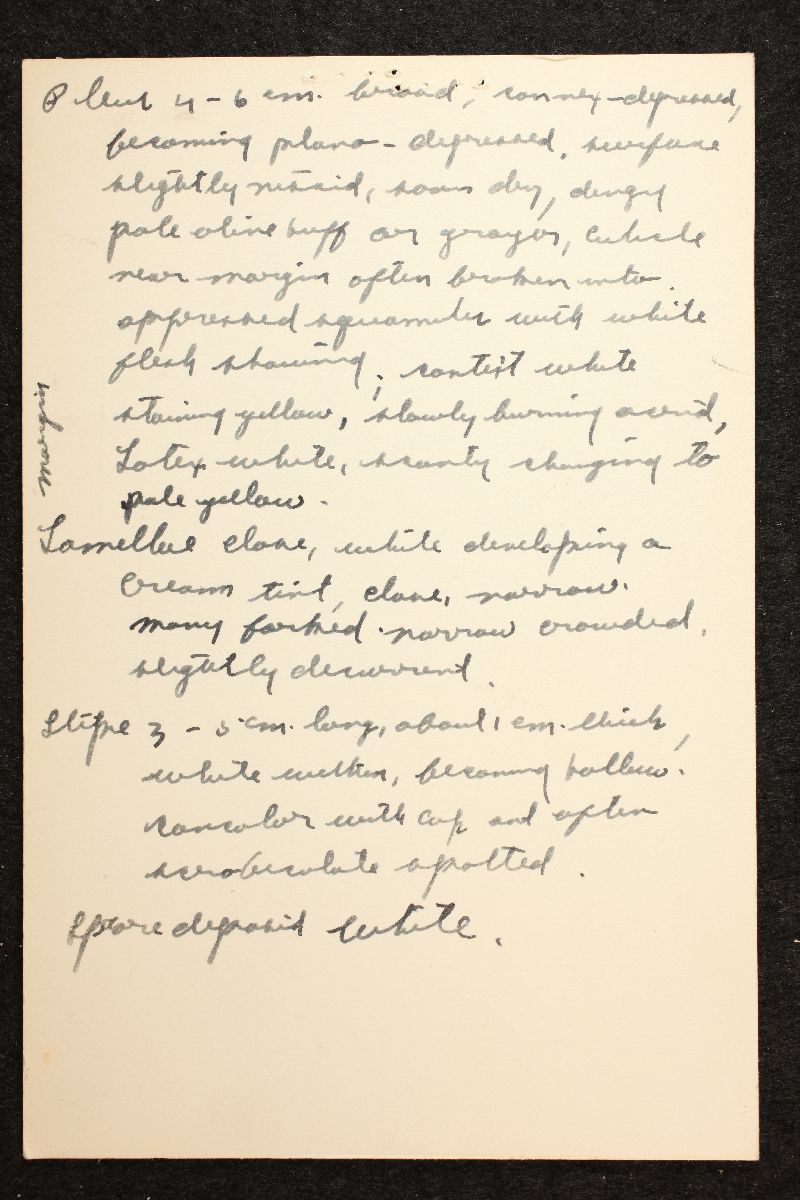 Pileus 4-6 cm. broad, convex-depressed,
becoming plano-depressed, surface
slightly viscid, soon dry, dingy
pale olive buff or grayer, cuticle
near margin often broken into
appressed squamules with white
flesh showing; context white
staining yellow, slowly burning acrid,
Latex white, scanty changing to
pale yellow.
margin
Lamellae close, white developing a
cream tint, close, narrow.
many forked. narrow crowded,
slightly decurrent.
Stipe 3-5 cm. long, about 1 cm. thick,
white within, becoming hollow.
concolor with cap and often
scrobiculate spotted.
Spore deposit white.